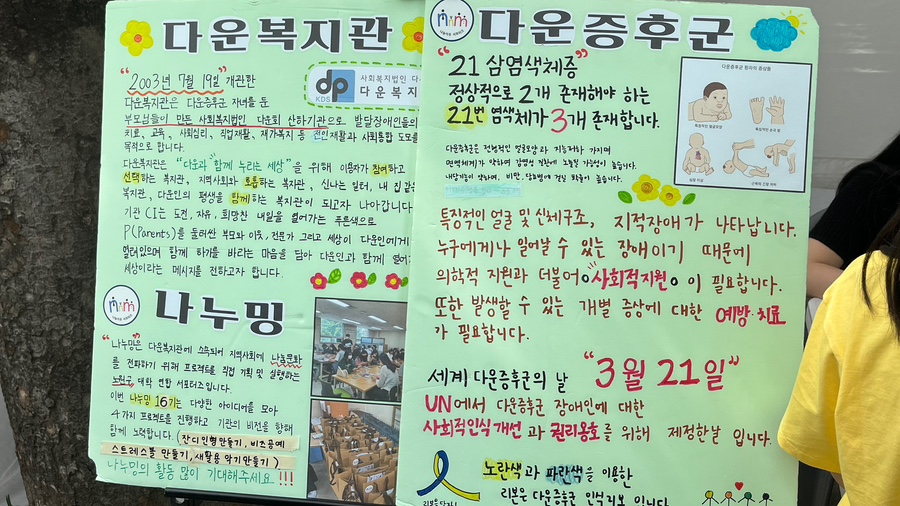 다운복지관
"2003년 7월 19일" 개관한
다운복지관은 다운증후군 자녀를 둔
부모님들이 만든 사회복지법인 다운회 산하기관으로 발달장애인들의
치료, 교육, 사회심리, 직업재활, 재가복지 등 전인재활과 사회통합 도모를
목적으로 합니다.
다운복지관은 "다운과 함께 누리는 세상"을 위해 이용자가 참여하고
선택하는 복지관, 지역사회와 호흡하는 복지관, 신나는 일터, 내 집 같은
복지관, 다운인의 평생을 함께하는 복지관이 되고자 나아갑니다
기관 CI는 도전, 자유, 희망찬 내일을 열어가는 푸른색으로
P(Parents)를 둘러싼 부모와 이웃, 전문가 그리고 세상이 다운인에게
열려있으며 함께 하기를 바라는 마음을 담아 다운인과 함께
세상이라는 메시지를 전하고자 합니다.
dp
KDS
사회복지법인
다운복지
나누밍
"나누밍"은 다운복지관에 소속되어 지역사회에 나눔문화
를 전파하기 위해 프로젝트를 직접 기획 및 실행하는
노원구 대학 연합 서포터즈입니다.
이번 나누밍 16기는 다양한 아이디어를 모아
4가지 프로젝트를 진행하고 기관의 비전을 향해
함께 노력합니다. (잔디인형만들기, 비즈공예
스트레스볼 만들기, 새활용 악기만들기)
나누밍의 활동 많이 기대해주세요!!!
다운증후군
"21 삼염색체증"
정상적으로 2개 존재해야 하는
21번 염색체가 3개 존재합니다.
다운증후군은 전형적인 얼굴모양과 지능저하 가지며
면역체계가 약하여 감염성 질환에 노출될 가능성이 높습니다.
다운증후군 환자의 증상들
특징적인 얼굴 및 신체구조, 지적장애가 나타납니다.
누구에게나 일어날 수 있는 장애이기 때문에
의학적 지원과 더불어 사회적지원이 필요합니다.
또한 발생할 수 있는 개별 증상에 대한 예방·치료
가 필요합니다.
세계 다운증후군의 날 "3월 21일"
UN에서 다운증후군 장애인에 대한
사회적인식개선과 권리옹호를 위해 제정한날 입니다.
노란색과 파란색을 이용한
리본은 다운증후군 인식리본 입니다